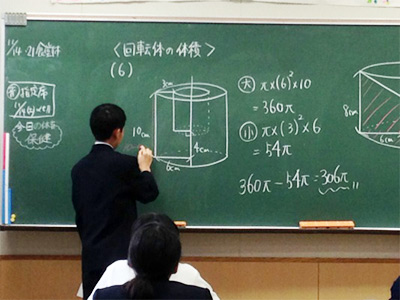 〈回転体の体積〉
(6)
3cm
10cm
4cm
6cm
大 π×(6)²×10
=360π
小 π×(3)²×6
=54π
360π-54π=306π
8cm
6cm
指定席
今日の
保健